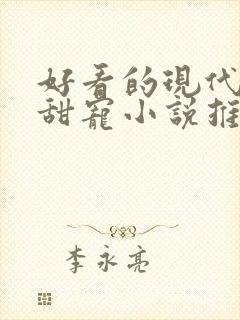 好看的現代
甜寵小說推
李永亮